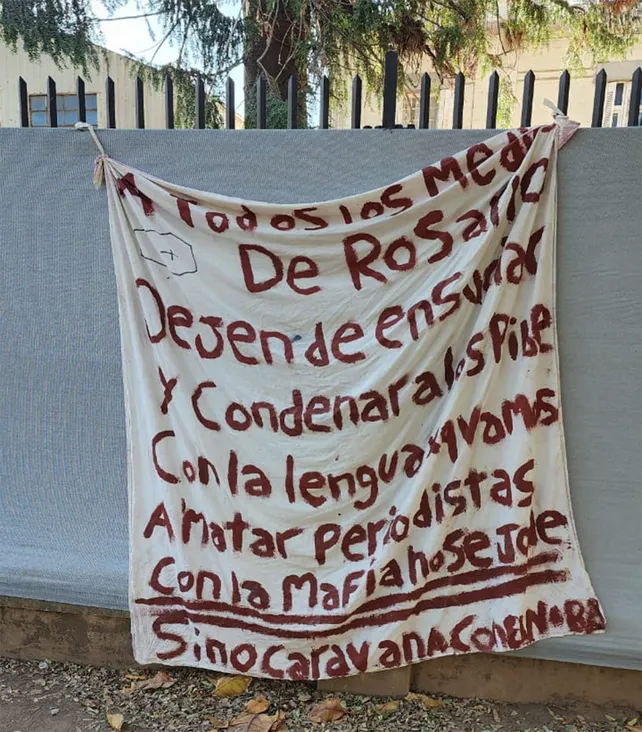 A Todos los
De Rosario
Dejen de ensuciar
Y Condenar a los Pibe
Con la lengua xq vamos
A Matar periodistas
Con la Mafia no se Jode
Sino Caravana